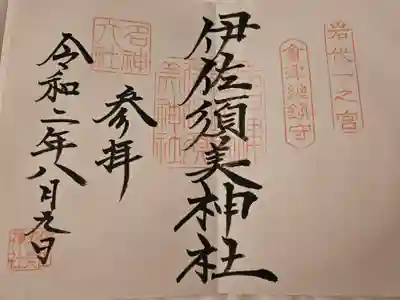 岩代一之宮
會津總鎮守
伊佐須美神社
参拝
名神大社
令和二年八月九日